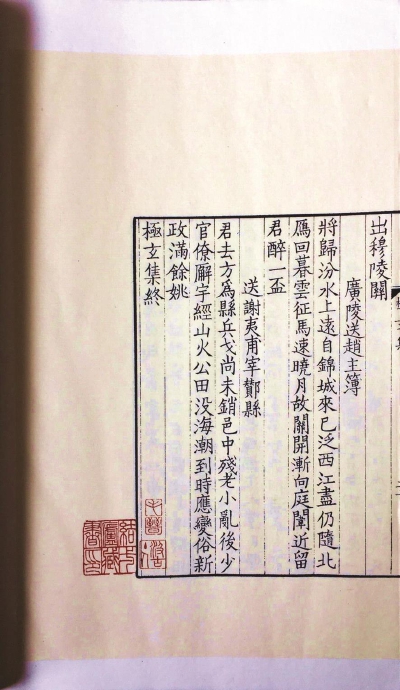 出穆陵關
廣陵送趙主簿
將歸汾水上遠自錦城來已泛西江盡仍隨北
鴈回暮雲征馬速曉月故關開漸向庭闈近留
君醉一盃
送謝夷甫宰鄮縣
君去方為縣兵戈尚未銷邑中殘老小亂後少
官僚廨宇經山火公田没海潮到時應變俗新
政滿餘姚
極玄集終